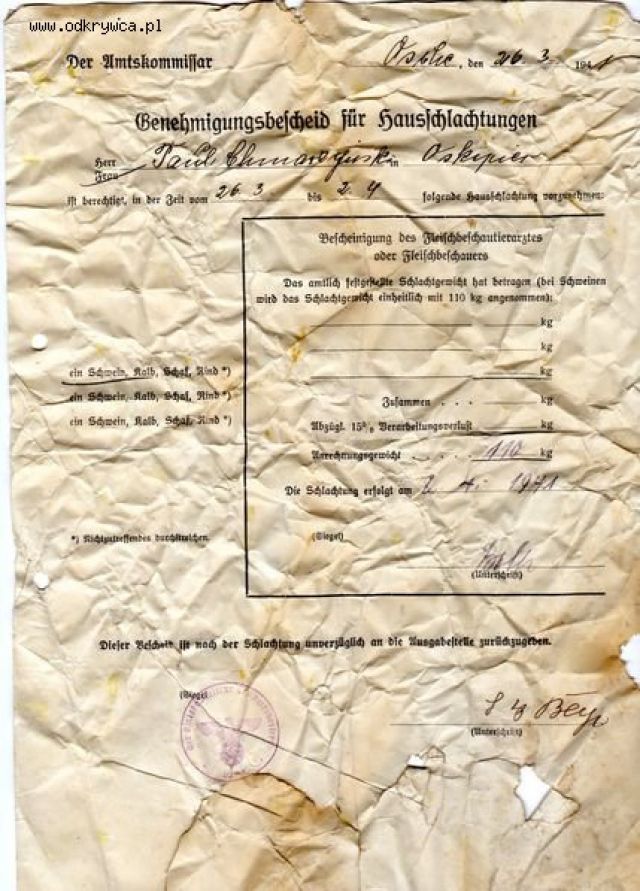 www.odkrywca.pl
Der Amtskommissar
den 26. 3. 1941
Genehmigungsbescheid für Hausschlachtungen
Herr
Frau
Paul in
ist berechtigt, in der Zeit vom 26.3 bis 2.4 folgende Hausschlachtung vorzunehmen:
Bescheinigung des Fleischbeschautierarztes
oder Fleischbeschauers
Das amtlich festgestellte Schlachtgewicht hat betragen (bei Schweinen
wird das Schlachtgewicht einheitlich mit 110 kg angenommen):
kg
kg
ein Schwein, Kalb, Schaf, Rind *)
kg
ein Schwein, Kalb, Schaf, Rind *)
Zusammen . . . kg
ein Schwein, Kalb, Schaf, Rind *)
Abzügl. 15% Verarbeitungsverlust kg
Anrechnungsgewicht . . . . 110 kg
Die Schlachtung erfolgt am 2. 4. 1941
*) Nichtzutreffendes durchstreichen.
(Siegel)
(Unterschrift)
Dieser Bescheid ist nach der Schlachtung unverzüglich an die Ausgabestelle zurückzugeben.
(Siegel)
(Unterschrift)